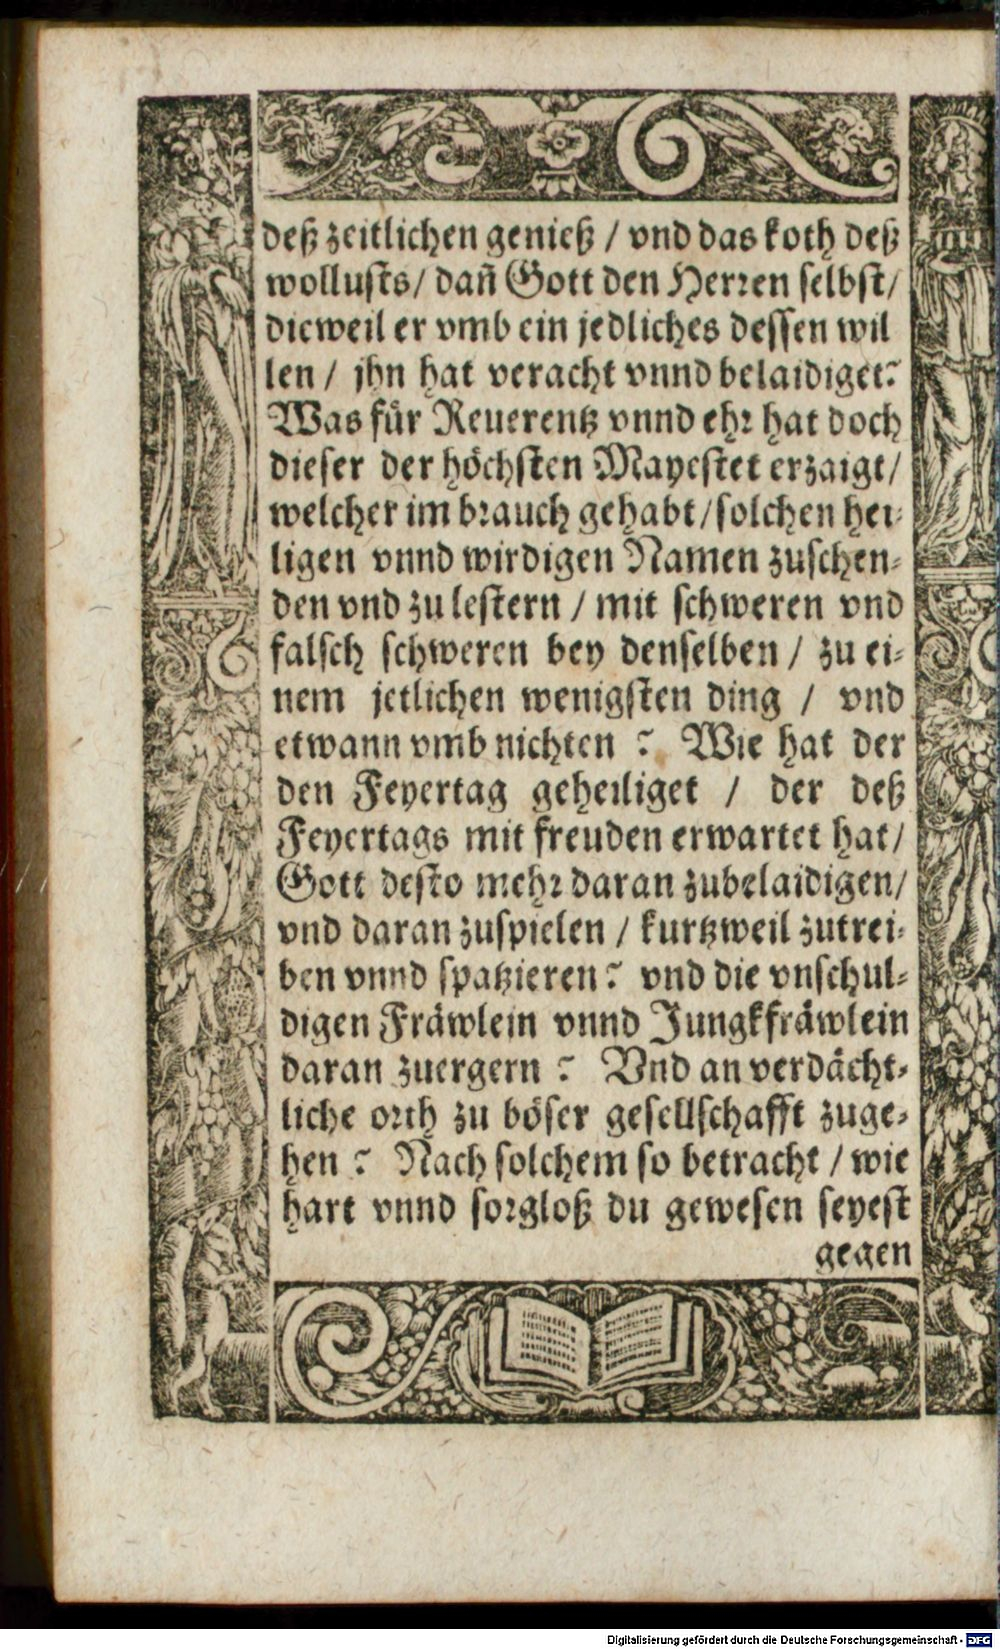 deß zeitlichen genieß / vnd das koth deß
wollusts / dan̄ Gott den Herren selbst /
dieweil er vmb ein jedliches dessen wil
len / jhn hat veracht vnnd belaidiget?
Was für Reuerentz vnnd ehr hat doch
dieser der höchsten Mayestet erzaigt /
welcher im brauch gehabt / solchen hei-
ligen vnnd wirdigen Namen zuschen-
den vnd zu lestern / mit schweren vnd
falsch schweren bey denselben / zu ei-
nem jetlichen wenigsten ding / vnd
etwann vmb nichten ? Wie hat der
den Feyertag geheiliget / der deß
Feyertags mit freuden erwartet hat /
Gott desto mehr daran zubelaidigen /
vnd daran zuspielen / kurtzweil zutrei-
ben vnnd spatzieren? vnd die vnschul-
digen Fräwlein vnnd Jungkfräwlein
daran zuergern ? Vnd an verdächt-
liche orth zu böser gesellschafft zuge-
hen ? Nach solchem so betracht / wie
hart vnnd sorgloß du gewesen seyest
gegen
Digitalisierung gefördert durch die Deutsche Forschungsgemeinschaft - DFG